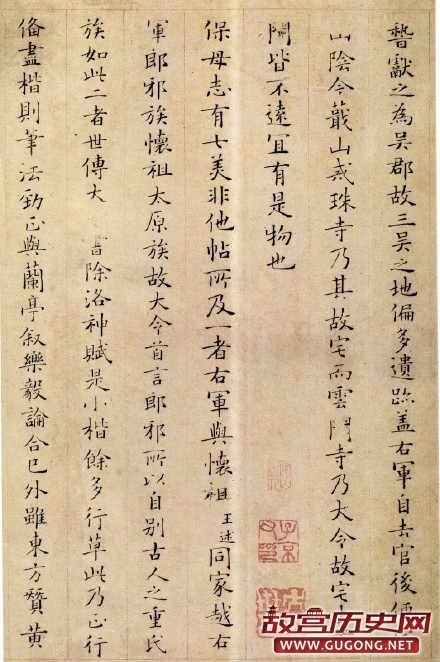 嘗獻之為吳郡故三吳之地偏多遺跡盖右軍自去官後便
山陰今蕺山戒珠寺乃其故宅而雲門寺乃大令故宅
開皆不遠宜有是物也
保母志有七美非他帖所及一者右軍與懷祖王述同家越右
軍郎邪族懷祖太原族故大令首言郎邪所以自別古人之重氏
族如此二者世傳大 書除洛神賦是小楷餘多行草此乃正行
俻盡楷則筆法勁正與蘭亭叙樂毅論合已外雖東方贊黃
故宫历史网
WWW.GUGONG.NET